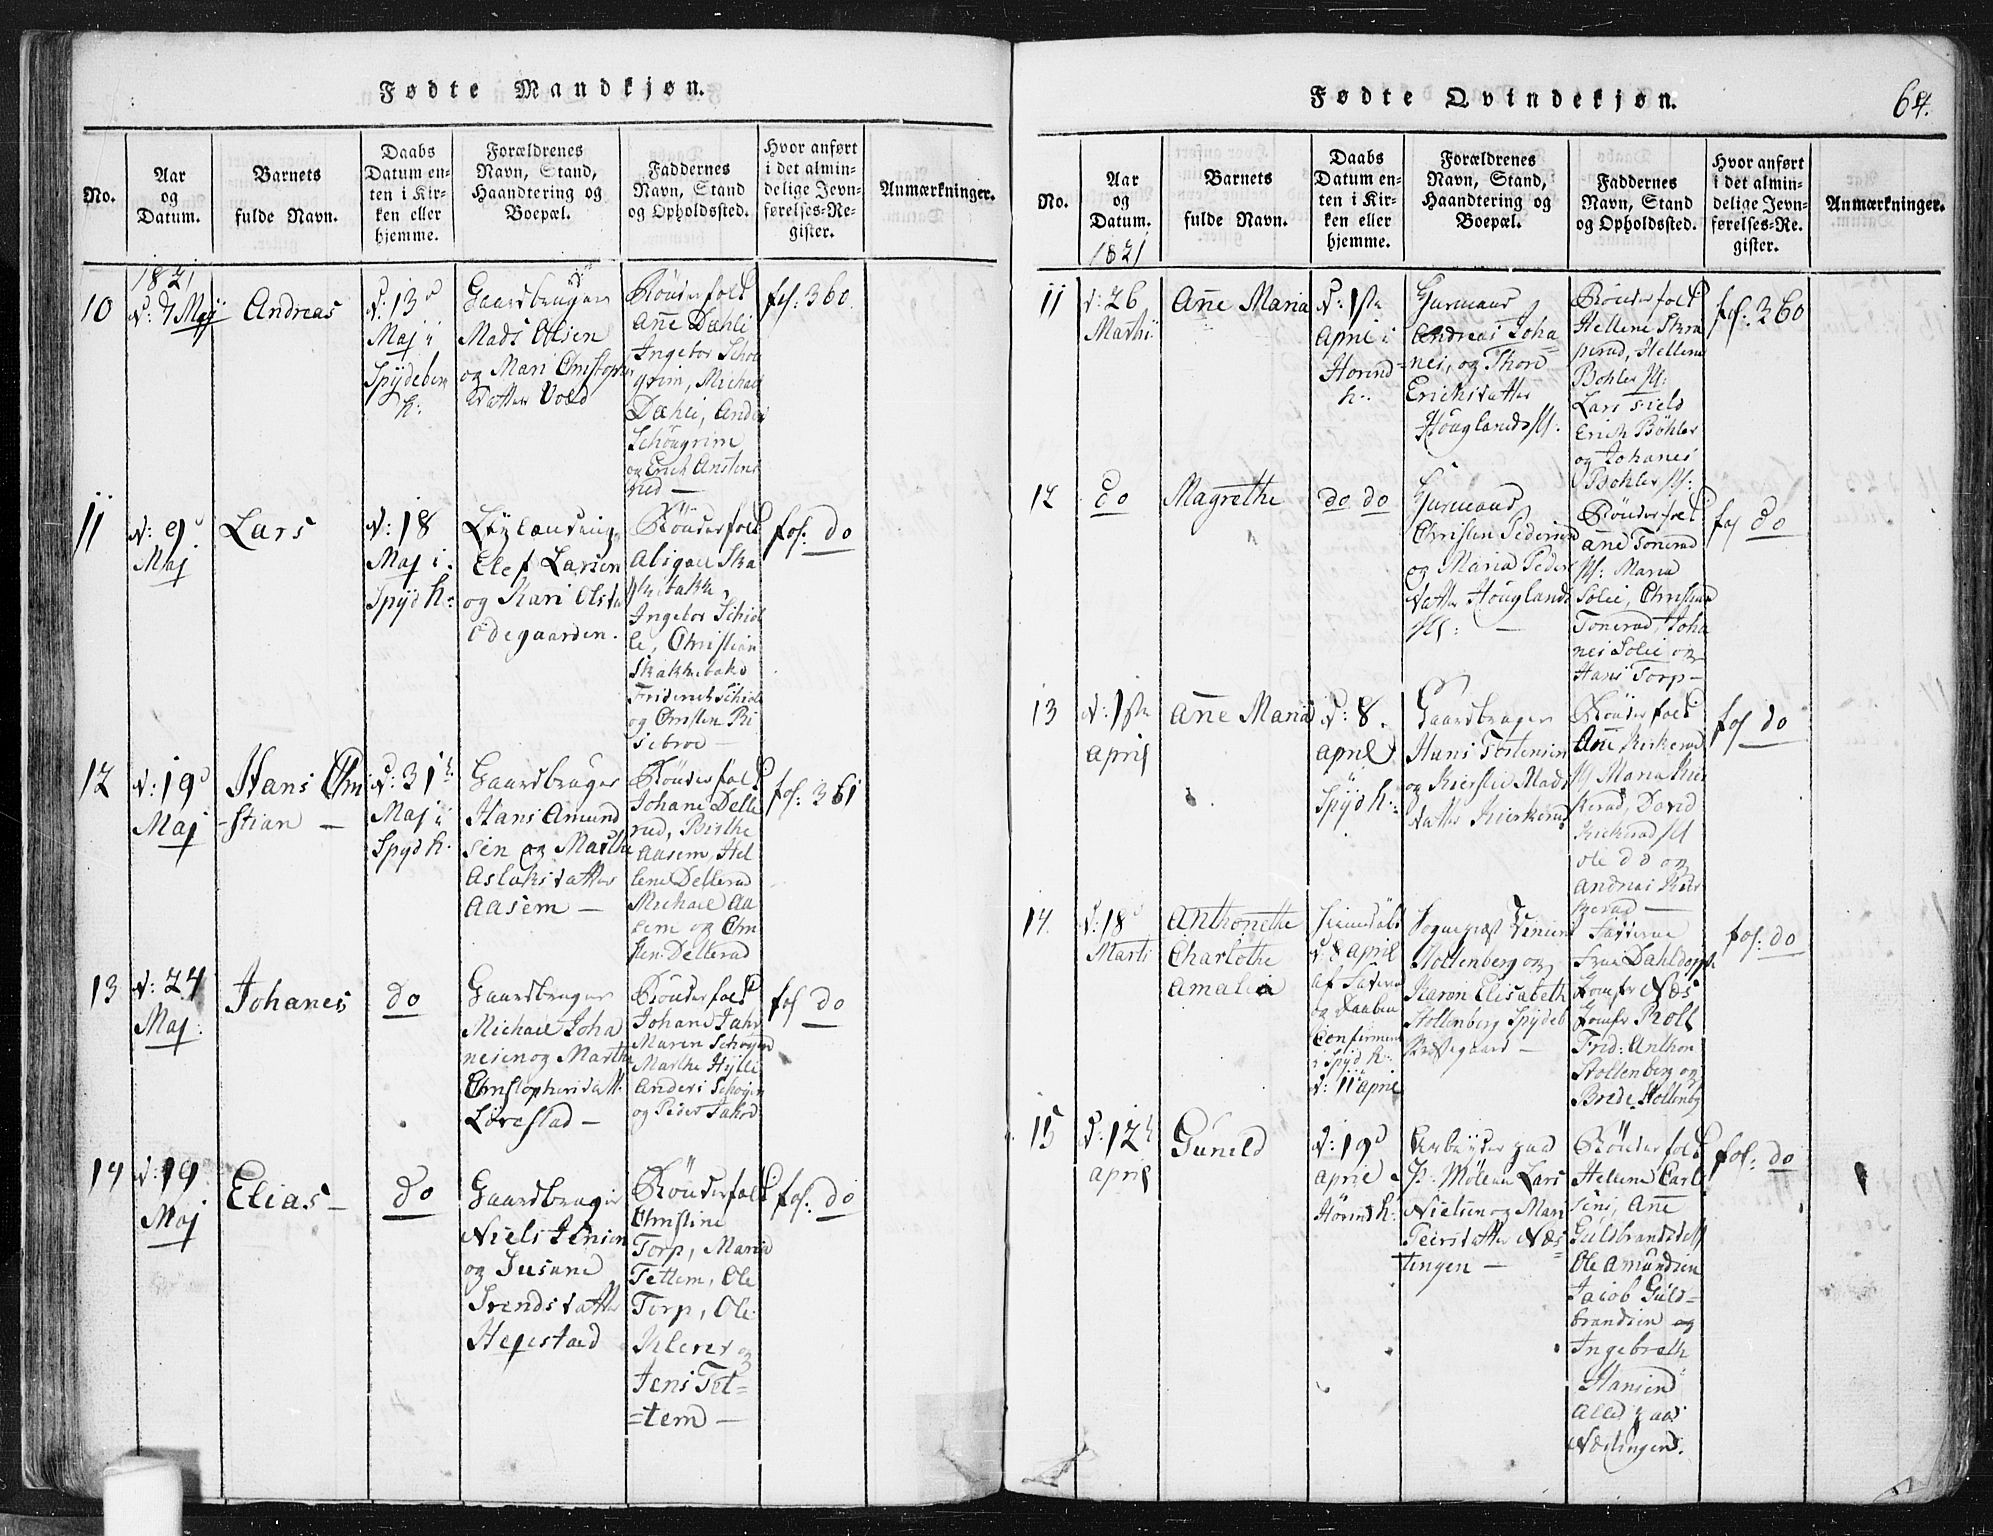 Fødte Mandkjøn.
No.
Aar
og
Datum.
Barnets
fulde Navn.
Daabs
Datum en-
ten i Kir-
ken eller
hjemme.
Forældrenes
Navn, Stand,
Haandtering og
Boepæl.
Faddernes
Navn, Stand
og Opholdssted.
Hvor anført
i det almin-
delige Jevn-
førelses-Re-
gister.
Anmærkninger.
1821
10
d: 7 Maij
Andreas
d: 13
Maj i
Spydeber
k:
Gaardbruger
Mads Olsen
og Mari Christopher
datter Vold
Bönderfolk
Añe Dæhli
Ingebor
Michael
Dæhli, Anders
Schöugrim
og Erich
rud —
fol: 360
11
d: 9
Maj
Lars
d: 18
Maj i
Spyd k:
Elef Larsen
og Kari Olsda
Ödegaarden.
Bönderfolk
Abigael Ska
Ingebor Schiol
le, Christian
og Christen Ri
siebroe —
fol: do
12
d: 19
Maj
Hans Chri
-stian —
d: 31
Maj i
Spyd k:
Gaardbruger
Hans Amund
sen og Marthe
Aslaksdatter
Aasem —
Bönderfolk
Johane Delle
rud, Birthe
Aasem, Hel
lene Dellerud
Michael Aa
sem og Chri
sten Dellerud
fol: 361
13
d: 24
Maj:
Johanes
do
Gaardbruger
Michael Joha
nesen og Marthe
Christophersdatt.
Lörestad —
Bönderfolk
Johane Jahr
Maren
Marthe Hÿlli
Anders
og Peder Jahr
fol do
14
d: 19
Maj
Elias —
do
Gaardbruger
Niels Jensen
og Susane
Svendsdatter
Bönderfolk
Christine
Torp, Maria
Tettem, Ole
Torp, Ole
og
Jens Tet=
=tem —
fol: do
Fødte Qvindekjøn.
64.
No.
Aar
og
Datum.
1821
Barnets
fulde Navn.
Daabs
Datum en-
ten i Kir-
ken eller
hjemme.
Forældrenes
Navn, Stand,
Haandtering og
Boepæl.
Faddernes
Navn, Stand
og Opholdssted.
Hvor anført
i det almin-
delige Jevn-
førelses-Re-
gister.
Anmærkninger.
11
d: 26
Martii
Añe Maria
d: 1ste
April i
k:
Andreas Joha=
=nes, og Thore
Erichsdatter
Bönderfolk
Hellene Skra
perud, Hellene
Bohler
Lars
Erich Böhler
og Johanes
Bohler
fol: 360
12
do
Magrethe
do do
Christen Pedersen
og Maria Peders
datter
Bönderfolk
Añe Tonerud
Maria
Solie, Christian
Tonerud, Joha
nes Solie og
Hans Torp —
fol do
13
d: 1ste
April
Añe Maria
d: 8
April
Spÿd k:
Gaardbruger
Hans
og Kierstie Mads
datter Kierkerud
Bönderfolk
Añe Kirkerud
Maria Kir
kerud, David
Kirkerud
Ole do og
Andreas Kir
kerud —
fol do
14.
d: 18
Marti
Anthonette
Charlothe
Amalia
Hiemedöbt
d: 8 April
og Daaben
Confirmeret
i Spÿd k:
d: 11 April
Stoltenberg og
Karen Elisabeth
Stoltenberg Spÿdeb
Præstegaard —
Fadderne
Frue Dahldorph
Jomfr Næs
Jomfr Roll
Frid: Anthon
Stoltenberg og
Brede Stoltenb
fol: do
15
d: 12
April
Gunild
d: 19
April
k:
Arbeÿder paa
Lars
Nielsen og Mari
Peersdatter Næs=
tingen —
Bönderfolk
Hellene Carl
sens, Añe
Guldbrandsdatt
Ole Amundsen
Jacob Güld=
brandsen og
Ingebreth
Hansen
Alle paa
Næstingen.
fol: do